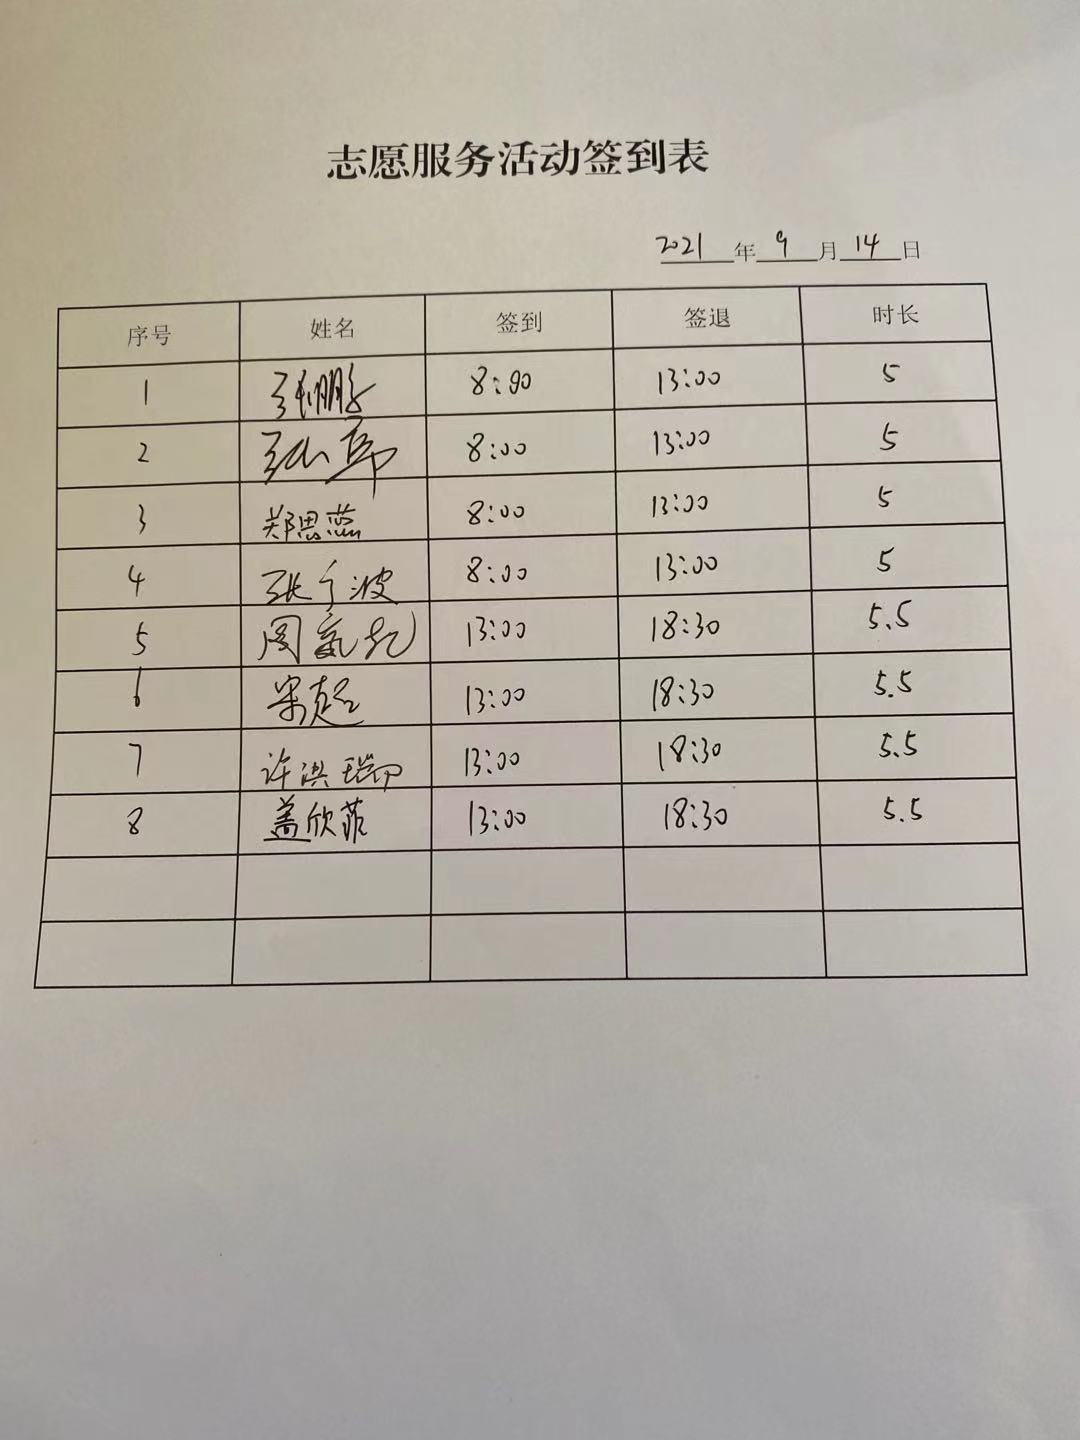 志愿服务活动签到表
2021年9月14日
序号 姓名 签到 签退 时长
1 张鹏 8:00 13:00 5
2 8:00 13:00 5
3 郑思蕊 8:00 13:00 5
4 张宁波 8:00 13:00 5
5 周 13:00 18:30 5.5
6 宋超 13:00 18:30 5.5
7 许洪瑞 13:00 18:30 5.5
8 盖欣菲 13:00 18:30 5.5